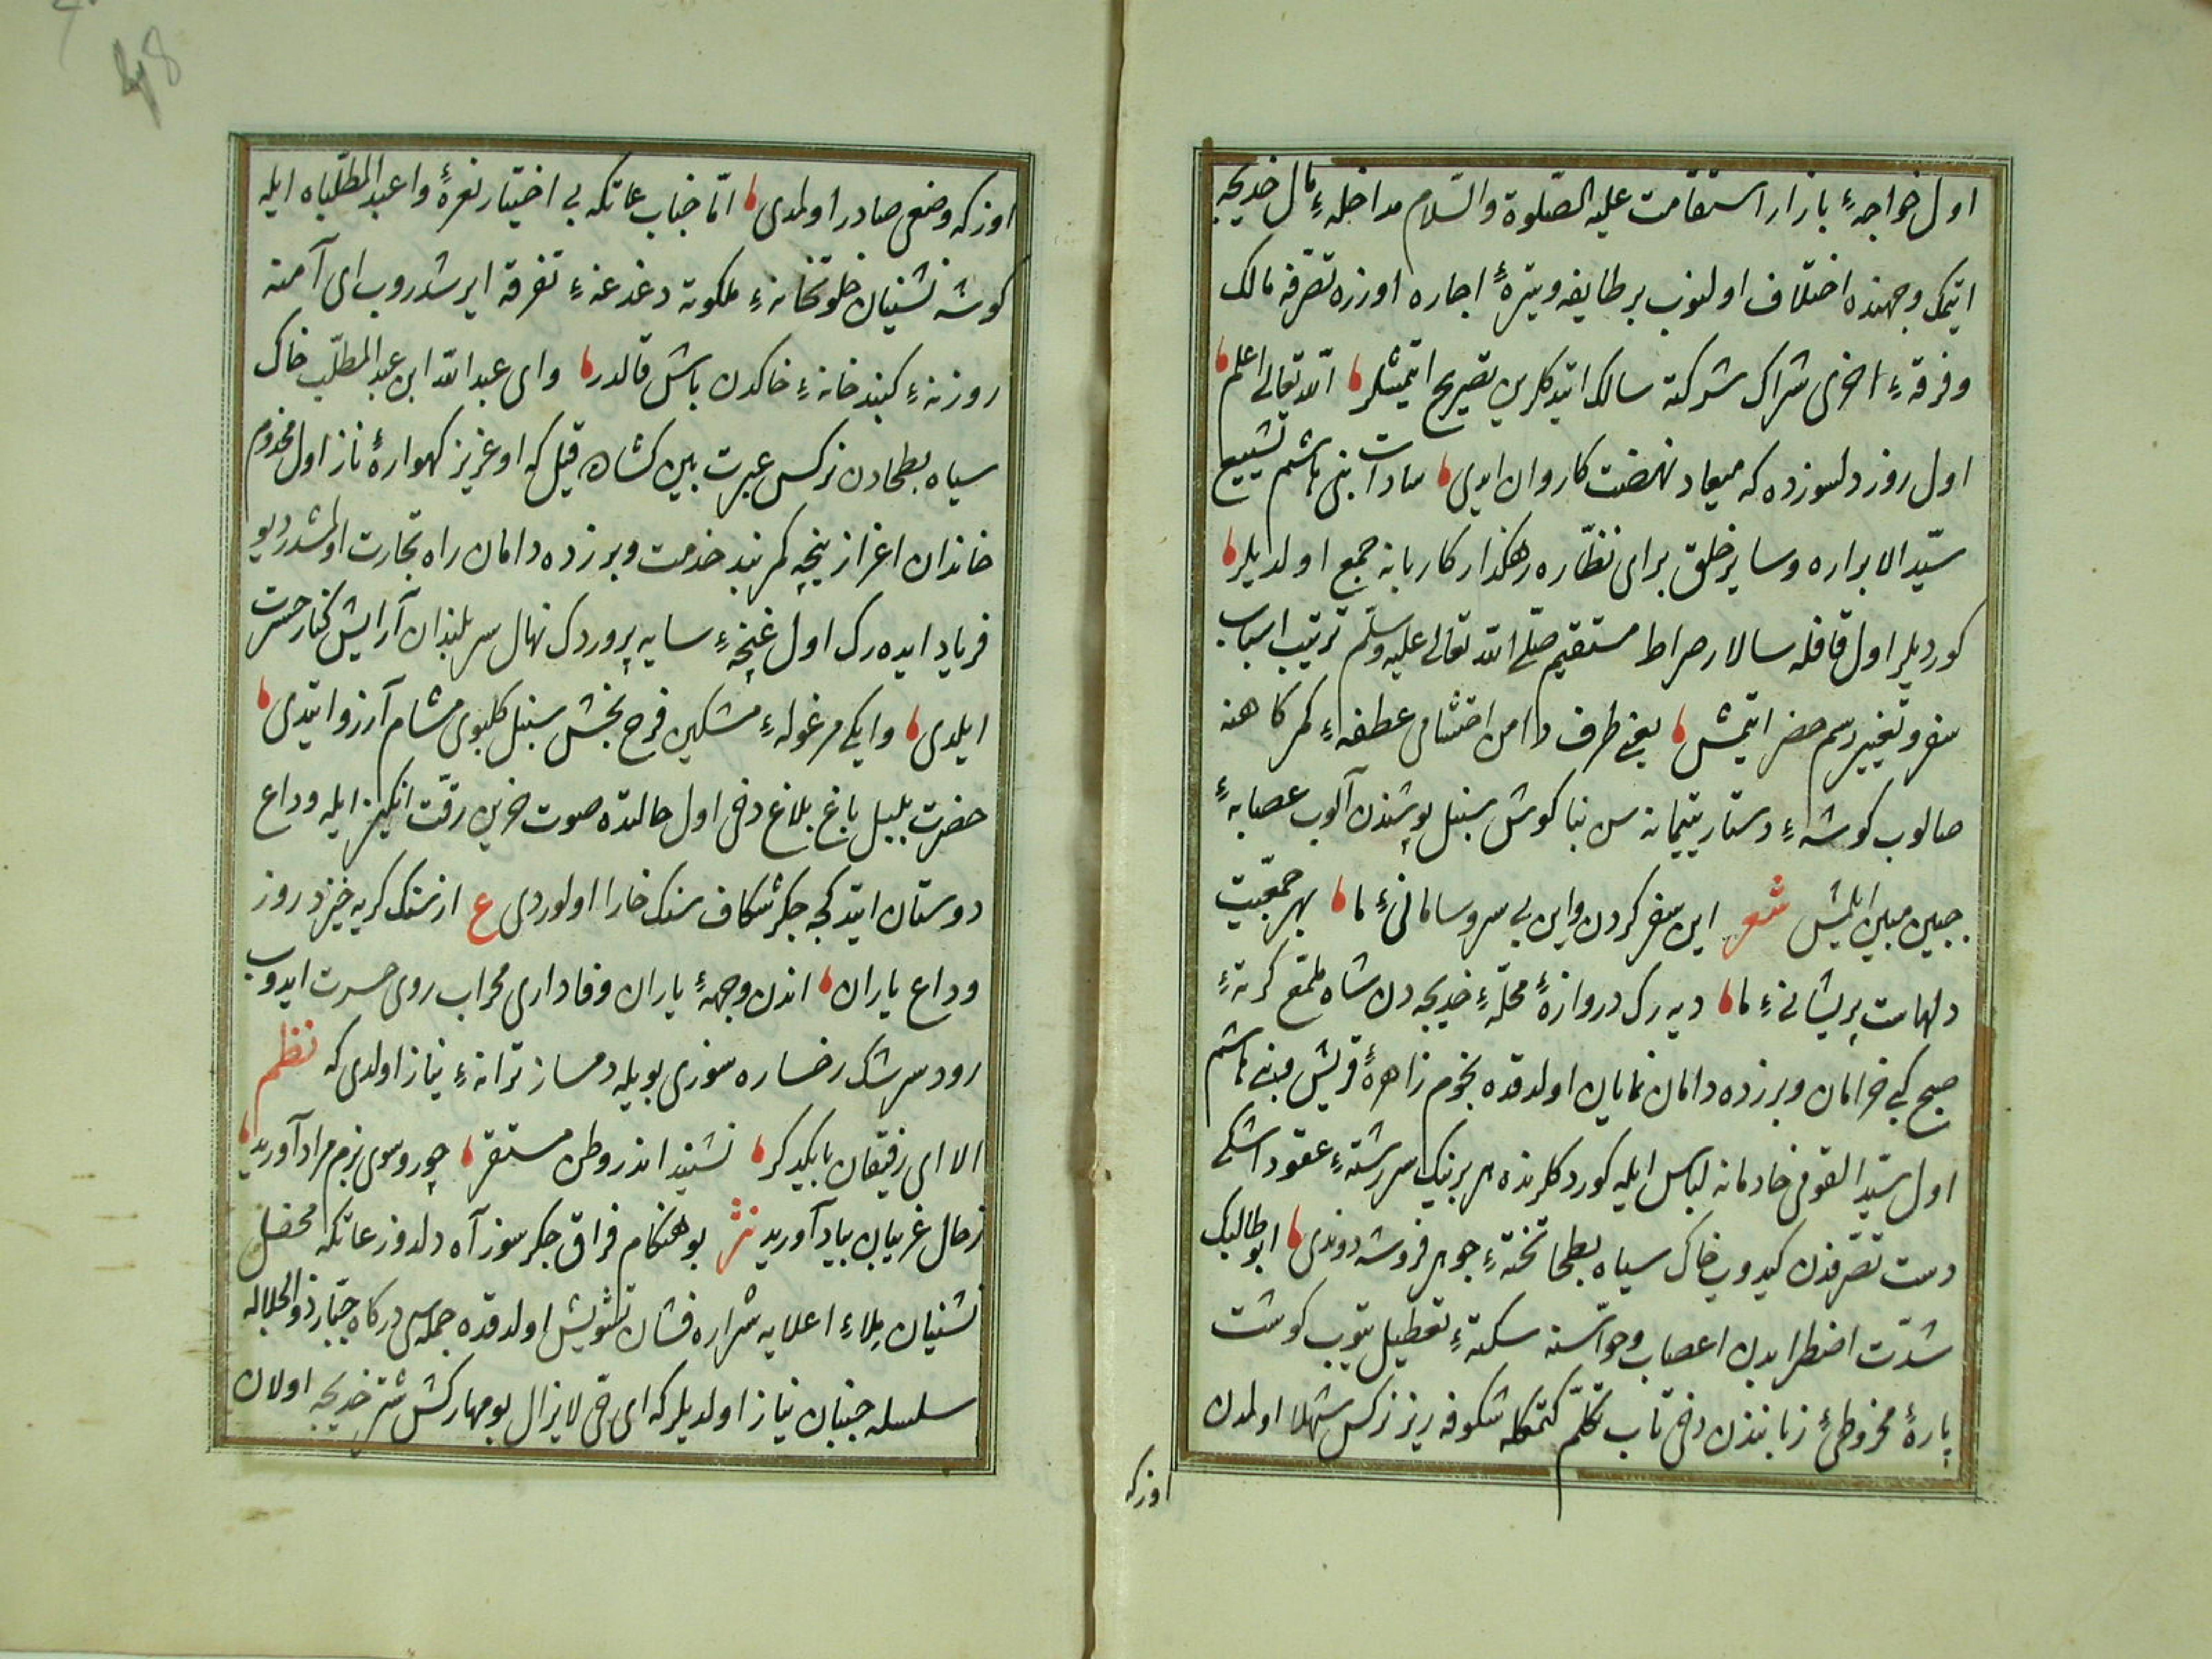 اول خواجهٔ بازار استقامت علیه الصّلوة والسّلام مداخلهٔ مال خدیجه
ایتمك وجهنده اختلاف اولنوب بر طایفه وتیرهٔ اجاره اوزره تصرّفه مالك
وفرقهٔ اخرى شراك شركته سالك ایتدكلرین تصریح ایتمشلر الله تعالى اعلم
اول روز دلسوزده كه میعاد نهضت كاروان ایدى سادات بنى هاشم تشییع
سیّد الابراره وسایر خلق براى نظّاره رهگذار كاربانه جمع اولدیلر
كوردیلر اول قافله سالار صراط مستقیم صلّى الله تعالى علیه وسلّم ترتیب اسباب
سفر وتغییر رسم حضر ایتمش یعنى طرف دامن احتشامى عطفهٔ كمركاهنه
صالوب كوشهٔ دستار یتیمانه سن بناكوش سنبل پوشندن آلوب عصابهٔ
جبین مبین ایلمش شعر این سفر كردن واین بى سر وسامانئ ما بهر جمعیّت
دلهاست پریشانئ ما دیه رك دروازهٔ محلّهٔ خدیجه دن شاه ملمّع كرتهٔ
صبح كبى خرامان وبرزده دامان نمایان اولدقده نجوم زاهرهٔ قریش وبنى هاشم
اول سیّد القومى خادمانه لباس ایله كوردكلرنده هر برینك سررشتهٔ عقود اشكى
دست تصرّفدن كیدوب خاك سیاه بطحا تختهٔ جوهر فروشه دوندى ابو طالبك
شدّت اضطرابدن اعصاب وحواسّنه سكتهٔ تعطیل یتوب كوشت
پارهٔ مخروطئ زبانندن دخى تاب تكلّم كتمكله شكوفه ریز نركس شهلا اولمدن
اوزكه
اوزكه وضعى صادر اولمدى امّا جناب عاتكه بى اختیار نعرهٔ وا عبد المطّلباه ایله
كوشه نشینان خلوتخانهٔ ملكوته دغدغهٔ تفرقه ایرشدروب اى آمنه
روزنهٔ كنبد خانهٔ خاكدن باش قالدر واى عبد الله ابن عبد المطّلب خاك
سیاه بطحادن نركس عبرت بین كشاده قیل كه او عزیز كهوارهٔ ناز اول مخدوم
خاندان اعزاز نیجه كمر بند خدمت وبرزده دامان راه تجارت اولمشدر دیو
فریاد ایده رك اول غنچهٔ سایه پروردك نهال سربلندان آرایش كنار حسرت
ایلدى وایكى مرغولهٔ مشكین فرح بخش سنبل كلبوى مشام آرزو ایتدى
حضرت بلبل باغ بلاغ دخى اول حالتده صوت حزین رقّت انكیز ایله وداع
دوستان ایتدكجه جكر شكاف سنك خارا اولوردى ع از سنك كریه خیزد روز
وداع یاران اندن وجههٔ یاران وفادارى محراب روى حسرت ایدوب
رود سرشك رخساره سوزى بویله دمساز ترانهٔ نیاز اولدى كه نظم
الا اى رفیقان با یكدكر نشیند اندر وطن مستقر چو رو سوى بزم مراد آورید
ز حال غریبان بیاد آورید نثر بو هنكام فراق جكرسوز آه دلدوز عاتكه محفل
نشینان ملاء اعلایه شراره فشان تشویش اولدقده جمله سى دركاه جبّار ذو الجلاله
سلسله جنبان نیاز اولدیلر كه اى حىّ لا یزال بو مهاركش شتر خدیجه اولان